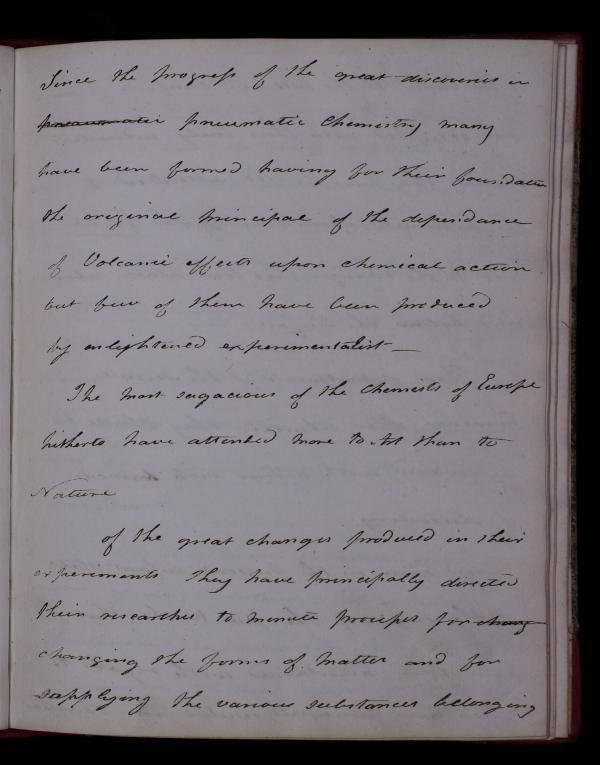 Since the progress of the great discoveries in
pneumatic pneumatic Chemistry many
have been formed having for their foundation
the original principal of the dependance
of Volcanic effects upon chemical action
but few of them have been produced
by enlightened experimentalist —
The most sagacious of the Chemists of Europe
hitherto have attended more to Art than to
Nature
of the great changes produced in their
experiments They have principally directed
their researches to minute processes for chang
changing the forms of Matter and for
supplying the various substances belonging